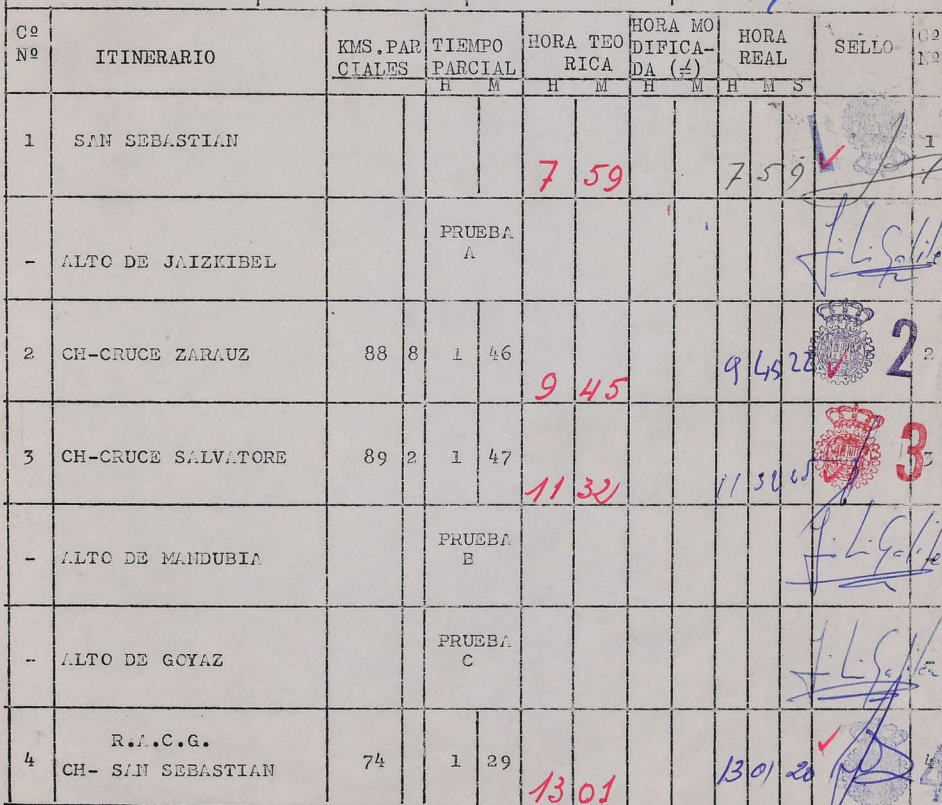 Cº Nº ITINERARIO KMS.PARCIALES TIEMPO PARCIAL HORA TEORICA HORA MODIFICADA (≠) HORA REAL SELLO Cº Nº
H M H M H M H M S
1 SAN SEBASTIAN 7 59 7 59 1
- ALTO DE JAIZKIBEL PRUEBA A
2 CH-CRUCE ZARAUZ 88 8 1 46 9 45 9 45 22 2 2
3 CH-CRUCE SALVATORE 89 2 1 47 11 32 11 32 3 3
- ALTO DE MANDUBIA PRUEBA B
- ALTO DE GOYAZ PRUEBA C
R.A.C.G.
4 CH- SAN SEBASTIAN 74 1 29 13 01 13 01 20 4